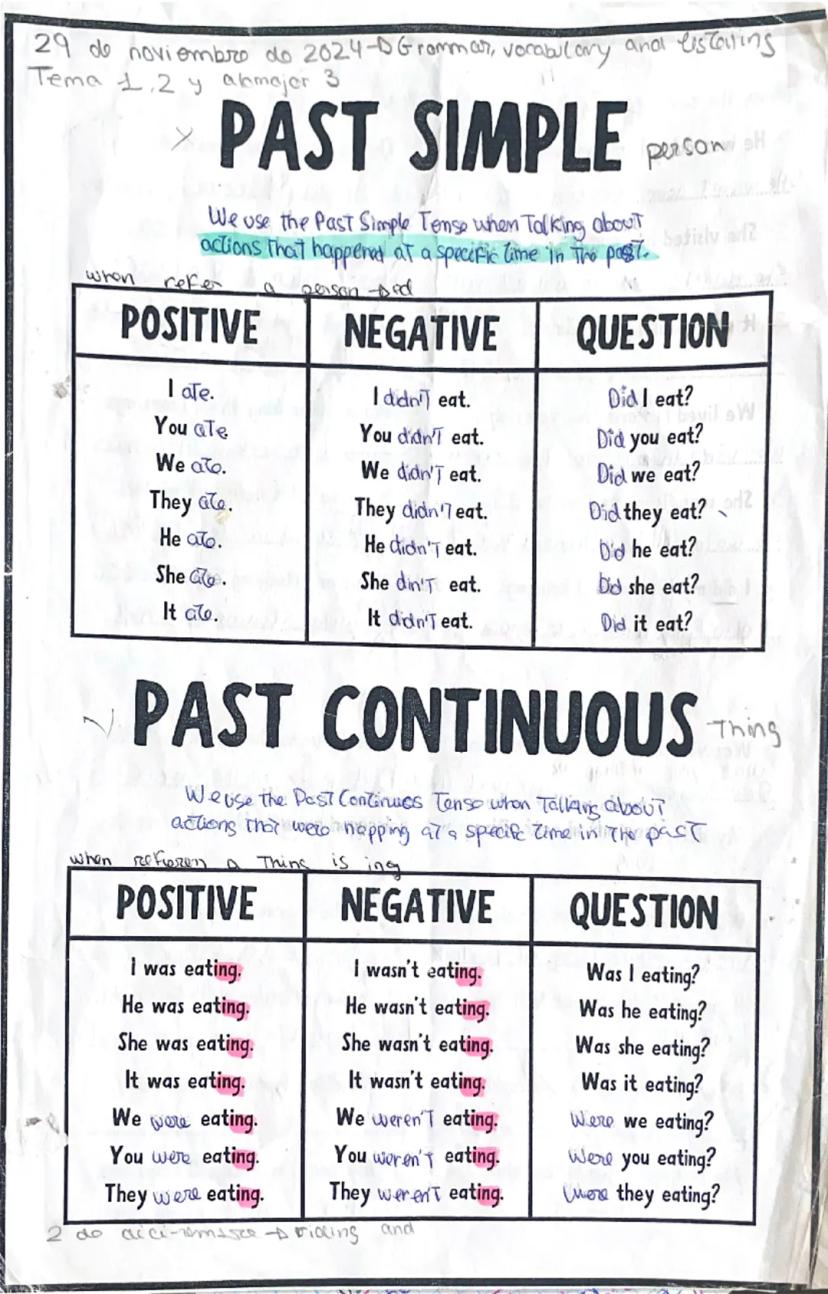 29 de noviembre de 2024→Grammar, vocabulary and listening
Tema 1, 2 y 3
PAST SIMPLE person
We use the Past Simple Tense when Talking about
actions that happened at a specific time in the past.
when refer a person→Did
POSITIVE NEGATIVE QUESTION
I ate. I didn't eat. Did I eat?
You ate You didn't eat. Did you eat?
We ate. We didn't eat. Did we eat?
They ate. They didn't eat. Did they eat?
He ate. He didn't eat. Did he eat?
She ate. She din't eat. Did she eat?
It ate. It didn't eat. Did it eat?
PAST CONTINUOUS Thing
We use the Past Continues Tense when Talking about
actions that were happing at a specific time in the past
when refieren a Thing is ing
POSITIVE NEGATIVE QUESTION
I was eating. I wasn't eating. Was I eating?
He was eating. He wasn't eating. Was he eating?
She was eating. She wasn't eating. Was she eating?
It was eating. It wasn't eating. Was it eating?
We were eating. We weren't eating. Were we eating?
You were eating. You weren't eating. Were you eating?
They were eating. They weren't eating. Were they eating?
2 de and